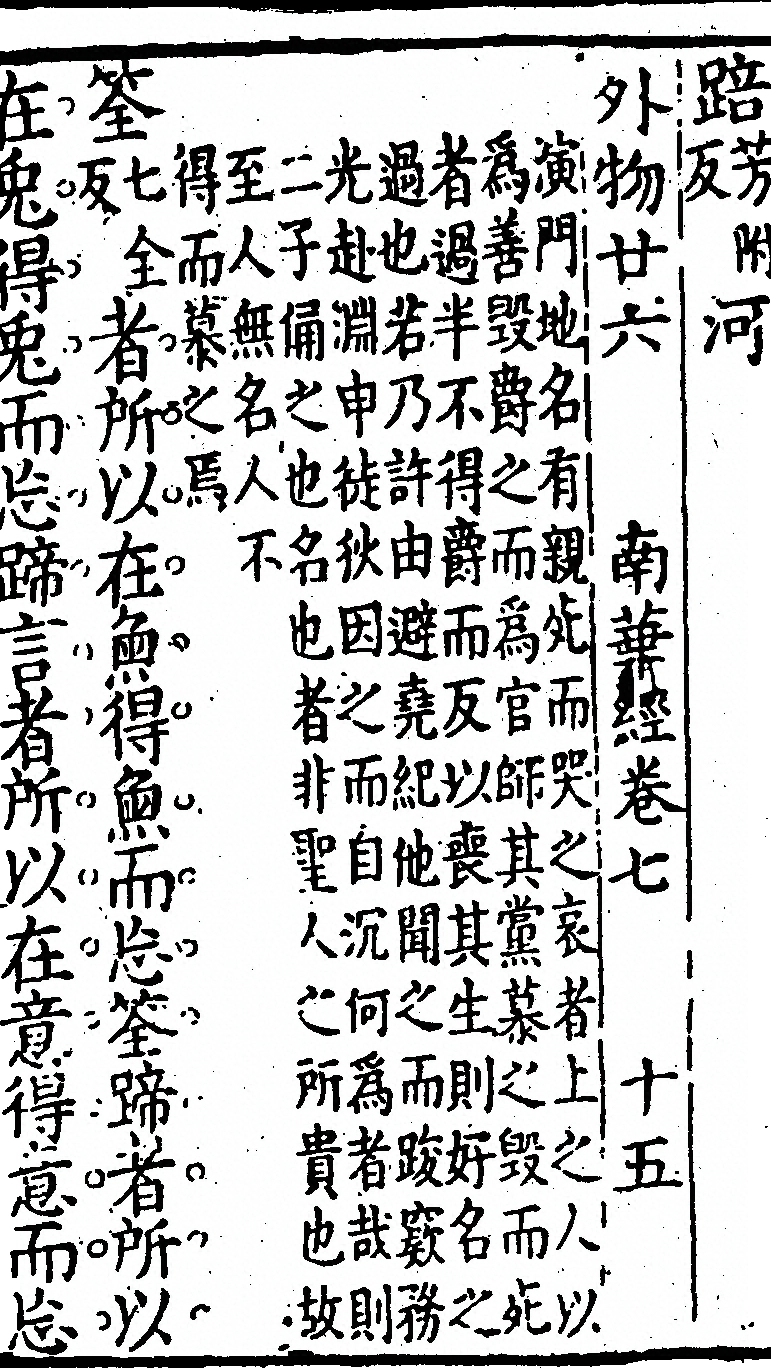 踣芳附反河
外物廿六 南華經卷七 十五
演門地名有親死而哭之哀者上之人以
爲善毀爵之而爲官師其黨慕之毀而死
者過半不得爵而反以喪其生則好名之
過也若乃許由避堯紀他聞之而踆窾務
光赴淵申徒狄因之而自沉何爲者哉則
二子俑之也名也者非聖人之所貴也故
至人無名人不
得而慕之焉
筌七全反者所以在魚得魚而忘筌蹄者所以
在兎得兎而忘蹄言者所以在意得意而忘